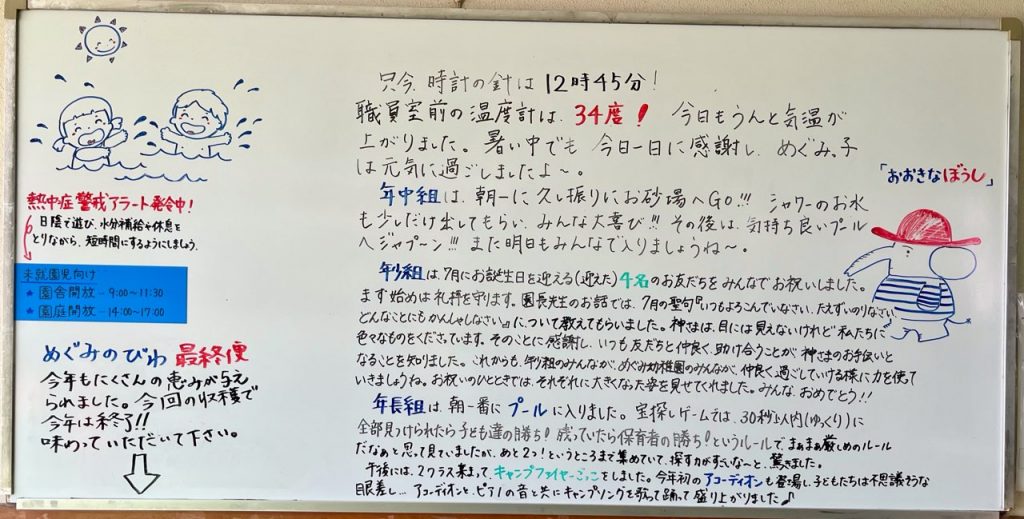 熱中症警戒アラート発令中!
日陰で遊び、水分補給や休息を
とりながら、短時間にするようにしましょう。
未就園児向け
★園舎開放-9:00~11:30
★園庭開放-14:00~17:00
めぐみのびわ 最終便
今年もたくさんの恵みが与え
られました。今回の収穫で
今年は終了!!
味わっていただいて下さい。
只今、時計の針は12時45分!
職員室前の温度計は、34度! 今日もうんと気温が
上がりました。暑い中でも 今日一日に感謝し、めぐみっ子
は元気に過ごしましたよ~。
「おおきなぼうし」
年中組は、朝一に久し振りにお砂場へGo!!! シャワーのお水
も少しだけ出してもらい、みんな大喜び!!! その後は、気持ち良いプール
へジャブーン!!! また明日もみんなで入りましょうね~。
年少組は、7月にお誕生日を迎える(迎えた)4名のお友だちをみんなでお祝いしました。
まず始めは礼拝を守ります。園長先生のお話では、7月の聖句『いつもよろこんでいなさい、たえずいのりなさい、
どんなことにもかんしゃしなさい。』について教えてもらいました。神さまは、目には見えないけれど私たちに
色々なものをくださっています。そのことに感謝し、いつも友だちと仲良く、助け合うことが神さまのお手伝いと
なることを知りました。これからも、年少組のみんなが、めぐみ幼稚園のみんなが、仲良く過ごしていける様に力を使って
いきましょうね。お祝いのひとときでは、それぞれに大きくなった姿を見せてくれました。みんな、おめでとう!!
年長組は、朝一番にプールに入りました。宝探しゲームでは、30秒以内(ゆっくり)に
全部見つけられたら子ども達の勝ち! 残っていたら保育者の勝ち!というルールで、まぁまぁ厳しめのルール
だなぁと思って見ていましたが、あと2つ!というところまで集めていて、探す力がすごいな~と、驚きました。
午後には、2クラス集まって、キャンプファイヤーごっこをしました。今年初のアコーディオンも登場し、子どもたちは不思議そうな
眼差し… アコーディオンと、ピアノの音と共にキャンプソングを歌って踊って盛り上がりました♪